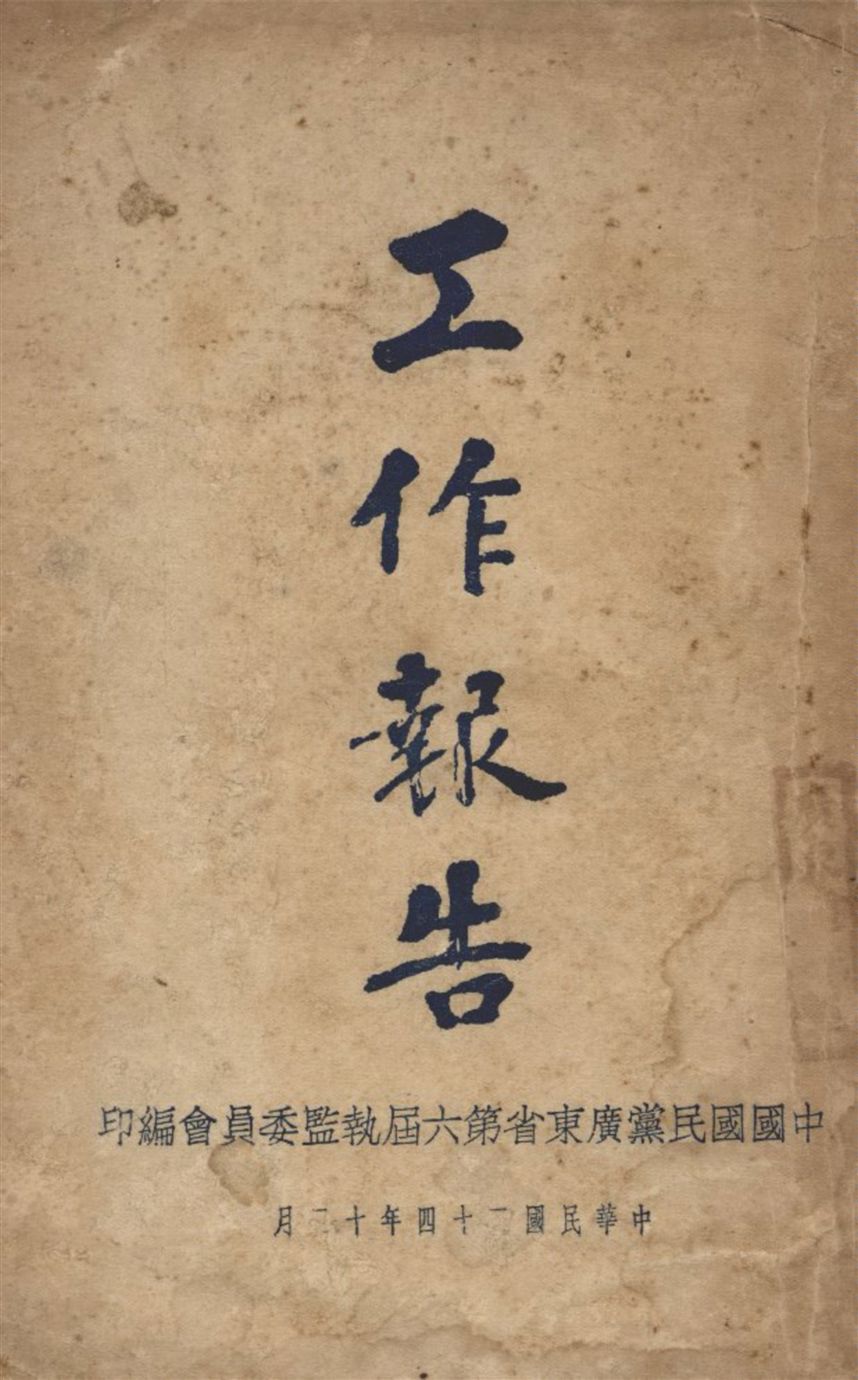 工作報告
中國國民黨廣東省第六屆執監委員會編印
中華民國二十四年十二月